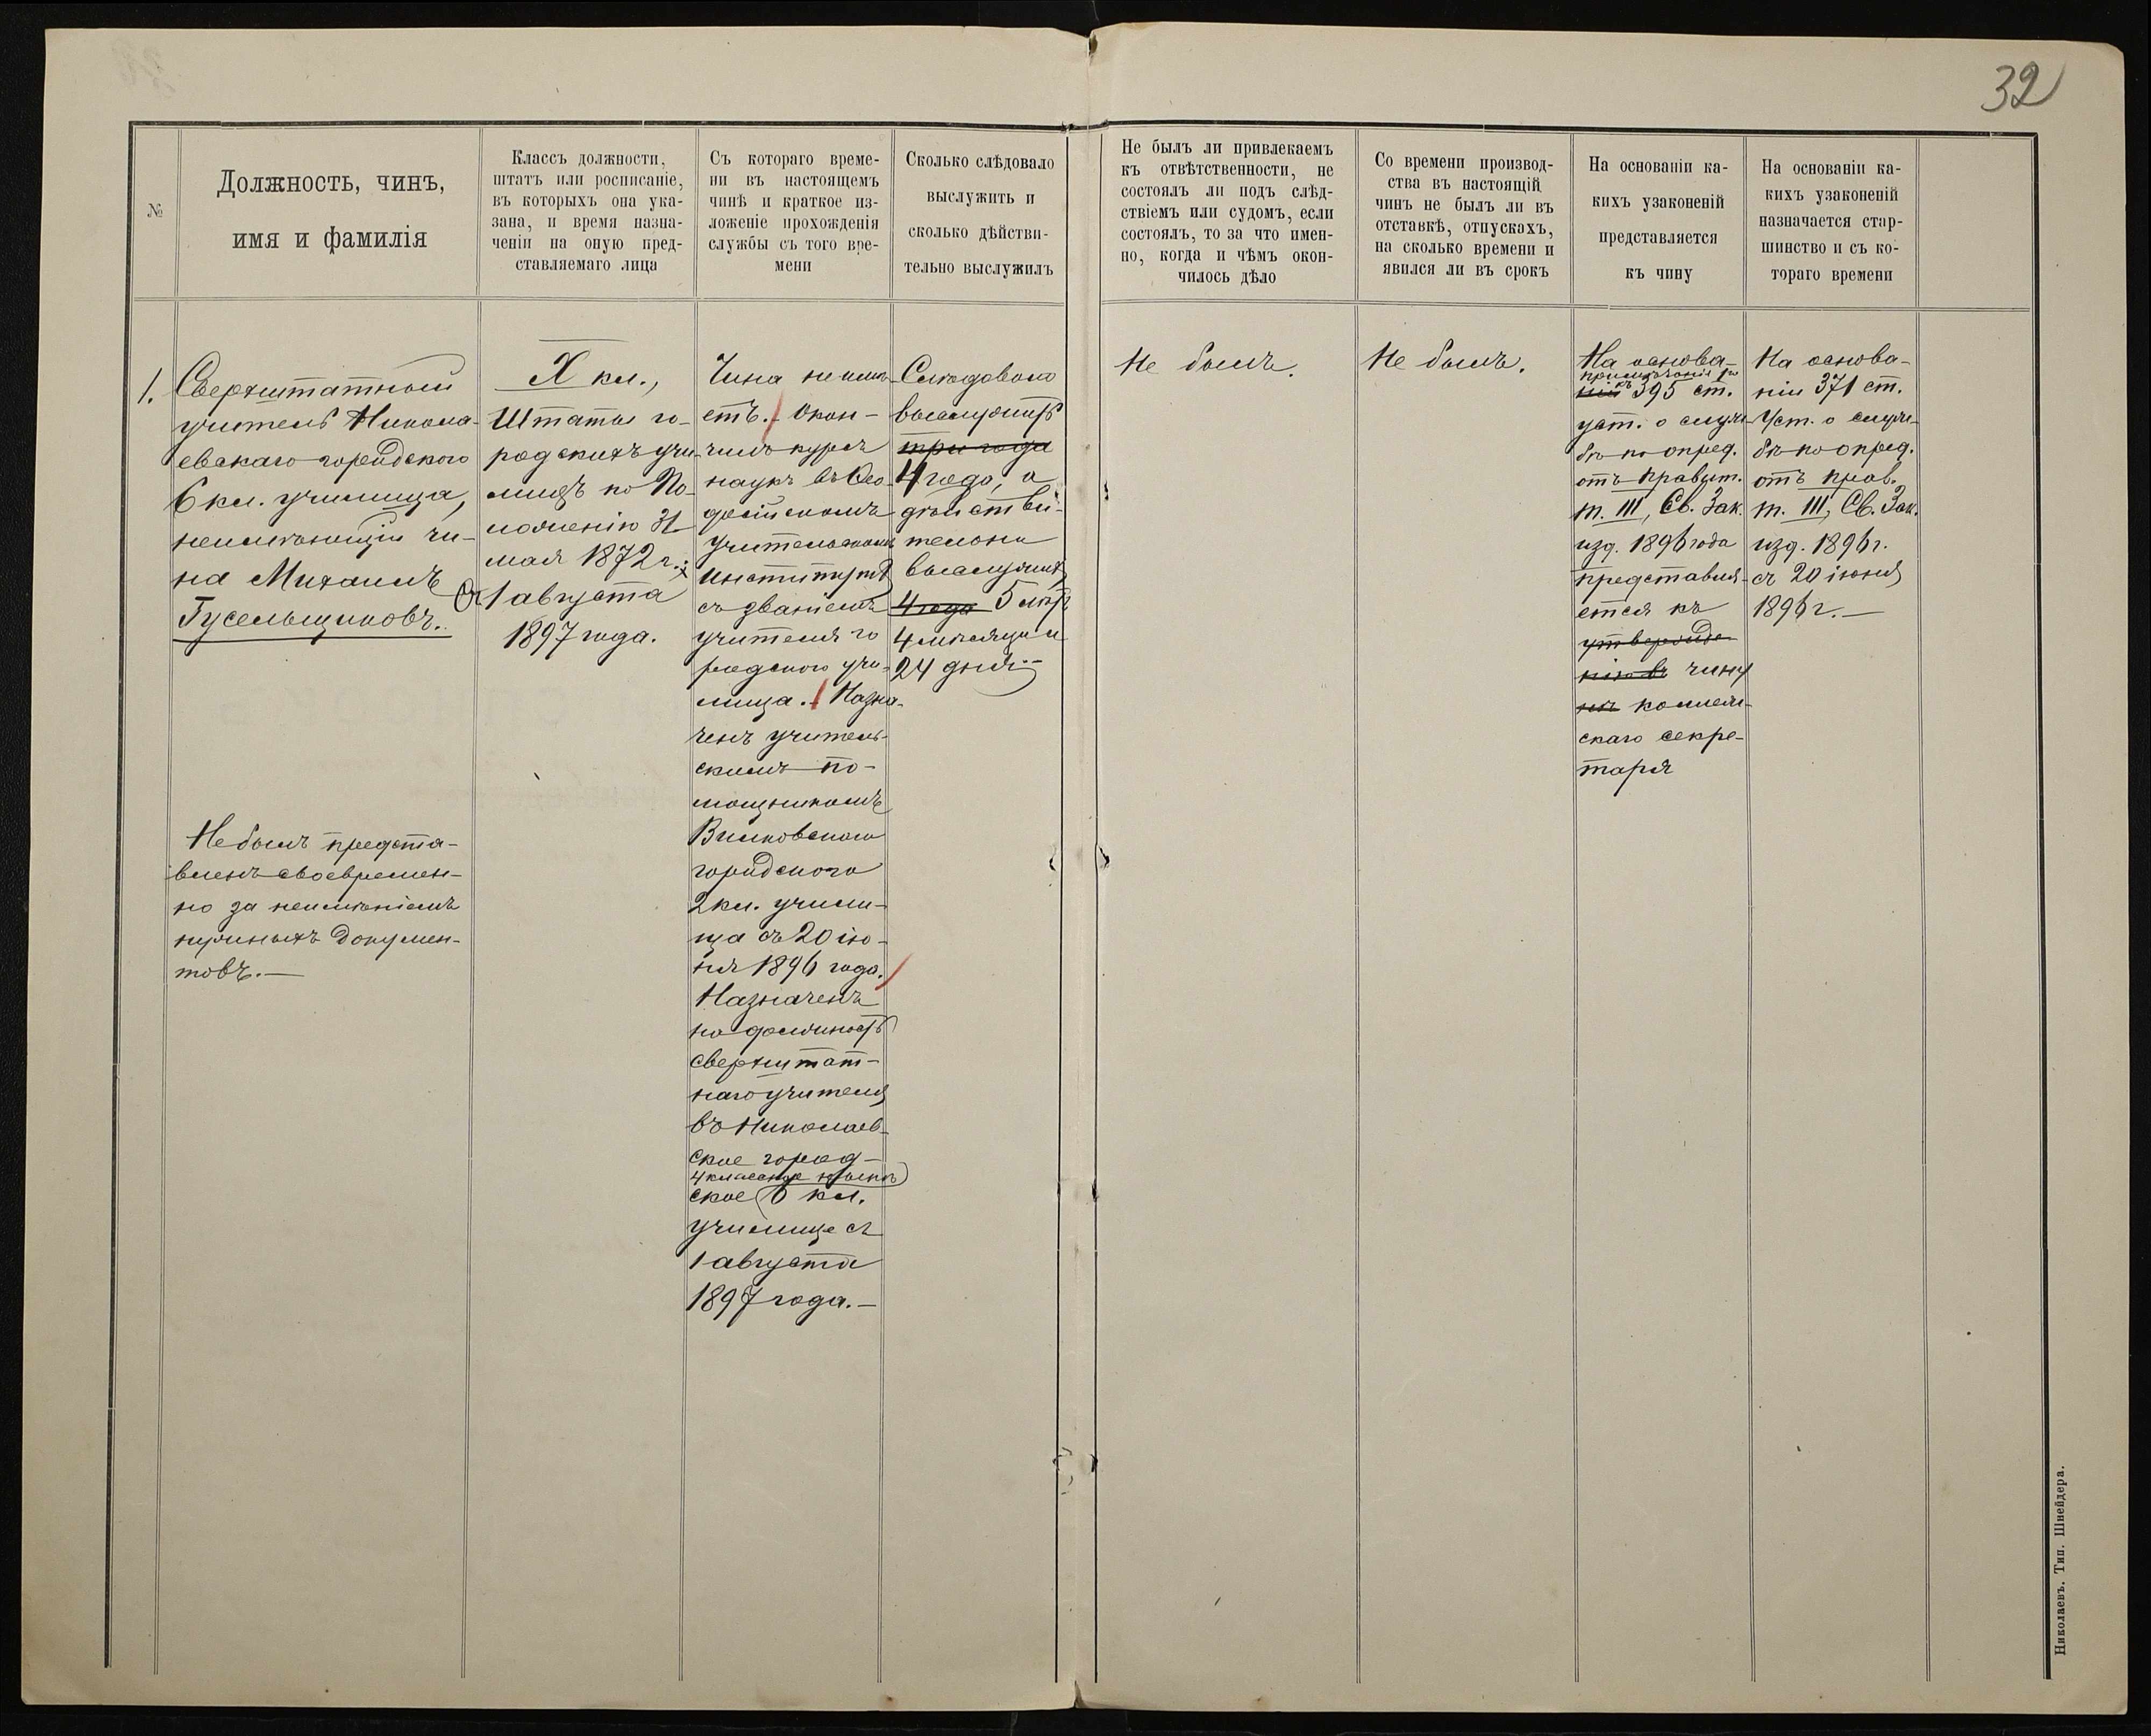 32
№
Должность, чинъ,
имя и фамилія
Классъ должности,
штатъ или росписаніе,
въ которыхъ она ука-
зана, и время назна-
ченіи на оную пред-
ставляемаго лица
Съ котораго време-
ни въ настоящемъ
чинѣ и краткое из-
ложеніе прохожденія
службы съ того вре-
мени
Сколько слѣдовало
выслужить и
сколько дѣйстви-
тельно выслужилъ
Не былъ ли привлекаемъ
къ отвѣтственности, не
состоялъ ли подъ слѣд-
ствіемъ или судомъ, если
состоялъ, то за что имен-
но, когда и чѣмъ окон-
чилось дѣло
Со времени производ-
ства въ настоящій
чинъ не былъ ли въ
отставкѣ, отпускахъ,
на сколько времени и
явился ли въ срокъ
На основаніи ка-
кихъ узаконеній
представляется
къ чину
На основаніи ка-
кихъ узаконеній
назначается стар-
шинство и съ ко-
тораго времени
1.
Сверхштатный
учитель Никола-
евскаго городского
6 кл. училища,
неимѣющій чи-
на Михаилъ
Гусельщиковъ.
Не былъ предста-
вленъ своевремен-
но за неимѣніемъ
нужныхъ докумен-
товъ.—
X кл.,
Штаты го-
родскихъ учи-
лищъ по По-
ложенію 31
мая 1872 г.;
Съ 1 августа
1897 года.
Чина не имѣ-
етъ. Окон-
чилъ курсъ
наукъ въ Ѳео-
досійскомъ
учительскомъ
институтѣ
съ званіемъ
учителя го
родского учи-
лища. Назна-
ченъ учитель-
скимъ по-
мощникомъ
Вилковского
городского
2 кл. учили-
ща съ 20 ію-
ня 1896 года.
Назначенъ
на должность
сверхштат-
наго учителя
въ Николаев-
ское город-
4 классное нынѣ
ское 6 кл.
училище съ
1 августа
1897 года.—
Слѣдовало
выслужить
три года
4 года, а
дѣйстви-
тельно
выслужилъ
4 года 5 лѣтъ
4 мѣсяца и
24 дня.—
Не былъ.
Не былъ.
На основа-
примѣчанія къ
ніи 395 ст.
уст. о служ-
бѣ по опред.
отъ правит.
т. III, Св. Зак.
изд. 1896 года
представля-
ется къ
утвержде-
нію въ чину
колеж-
скаго секре-
таря
На основа-
ніи 371 ст.
Уст. о служ-
бѣ по опред.
отъ прав.
т. III, Св. Зак.
изд. 1896 г.
съ 20 іюня
1896 г.—
Николаевъ. Тип. Шнейдера.